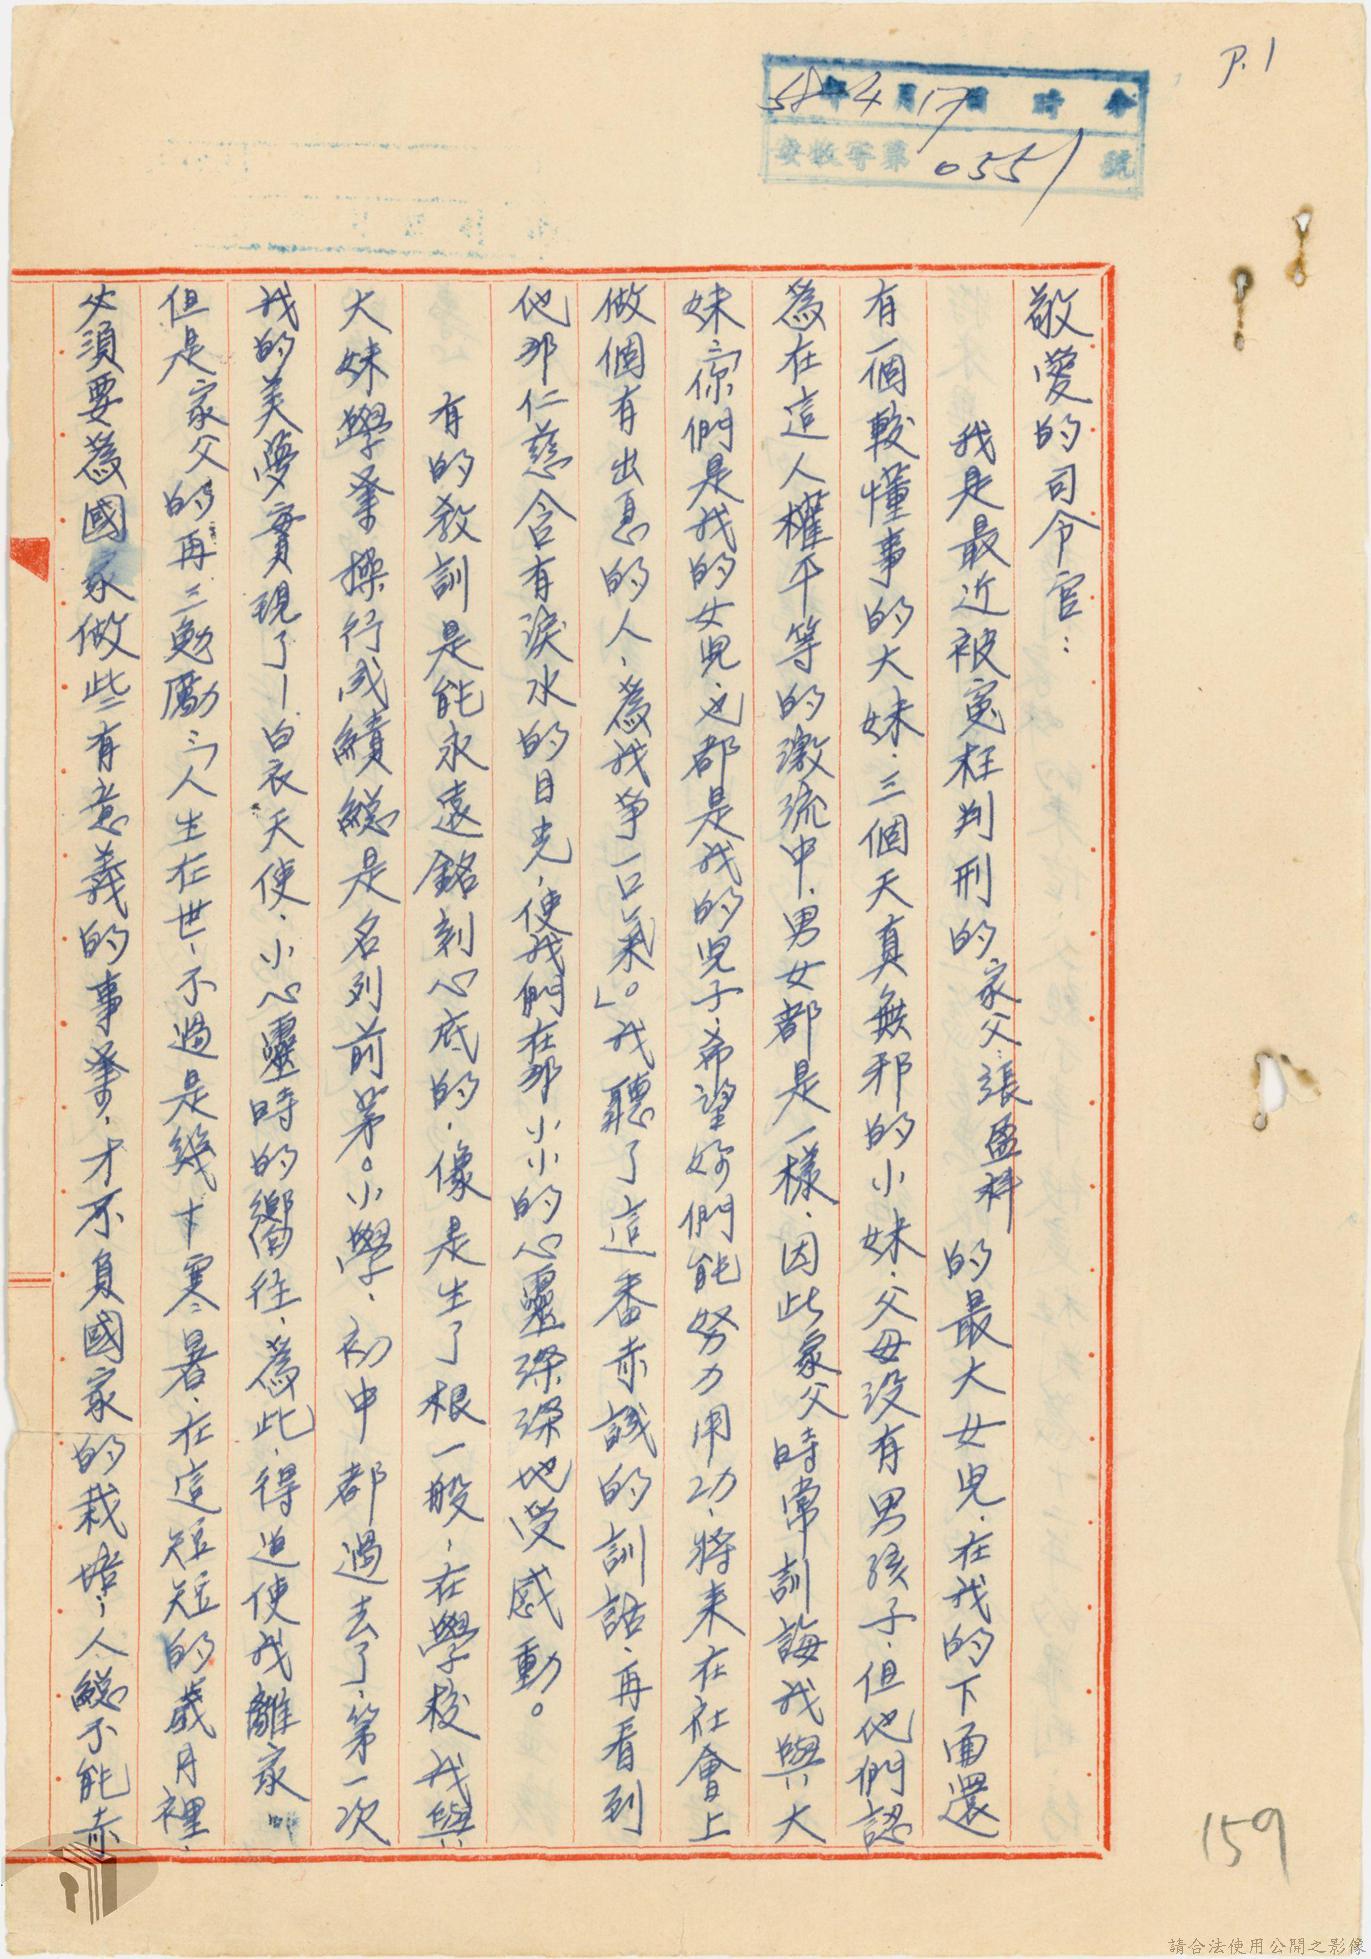 P.1
58年4月17日 時 分
安收字第0551號
敬愛的司令官：
我是最近被寃枉判刑的家父：張盈科的最大女兒，在我的下面還
有一個較懂事的大妹，三個天真無邪的小妹，父母沒有男孩子，但他們認
為在這人權平等的激流中，男女都是一樣，因此家父時常訓誨我與大
妹：「妳們是我的女兒，也都是我的兒子，希望妳們能努力用功，將來在社會上
做個有出息的人，為我爭一口氣」。我聽了這番赤誠的訓話，再看到
他那仁慈含有淚水的目光，使我們在那小小的心靈深深地受感動。
有的教訓是能永遠銘刻心底的，像是生了根一般，在學校我與
大妹學業操行成績總是名列前茅。小學、初中都過去了，第一次
我的美夢實現了—白衣天使，小心靈時的嚮往，為此，得迫使我離家，
但是家父的再三勉勵：「人生在世，不過是幾十寒暑，在這短短的歲月裡，
必須要為國家做些有意義的事業，才不負國家的栽培，人總不能赤
159
請合法使用公開之影像